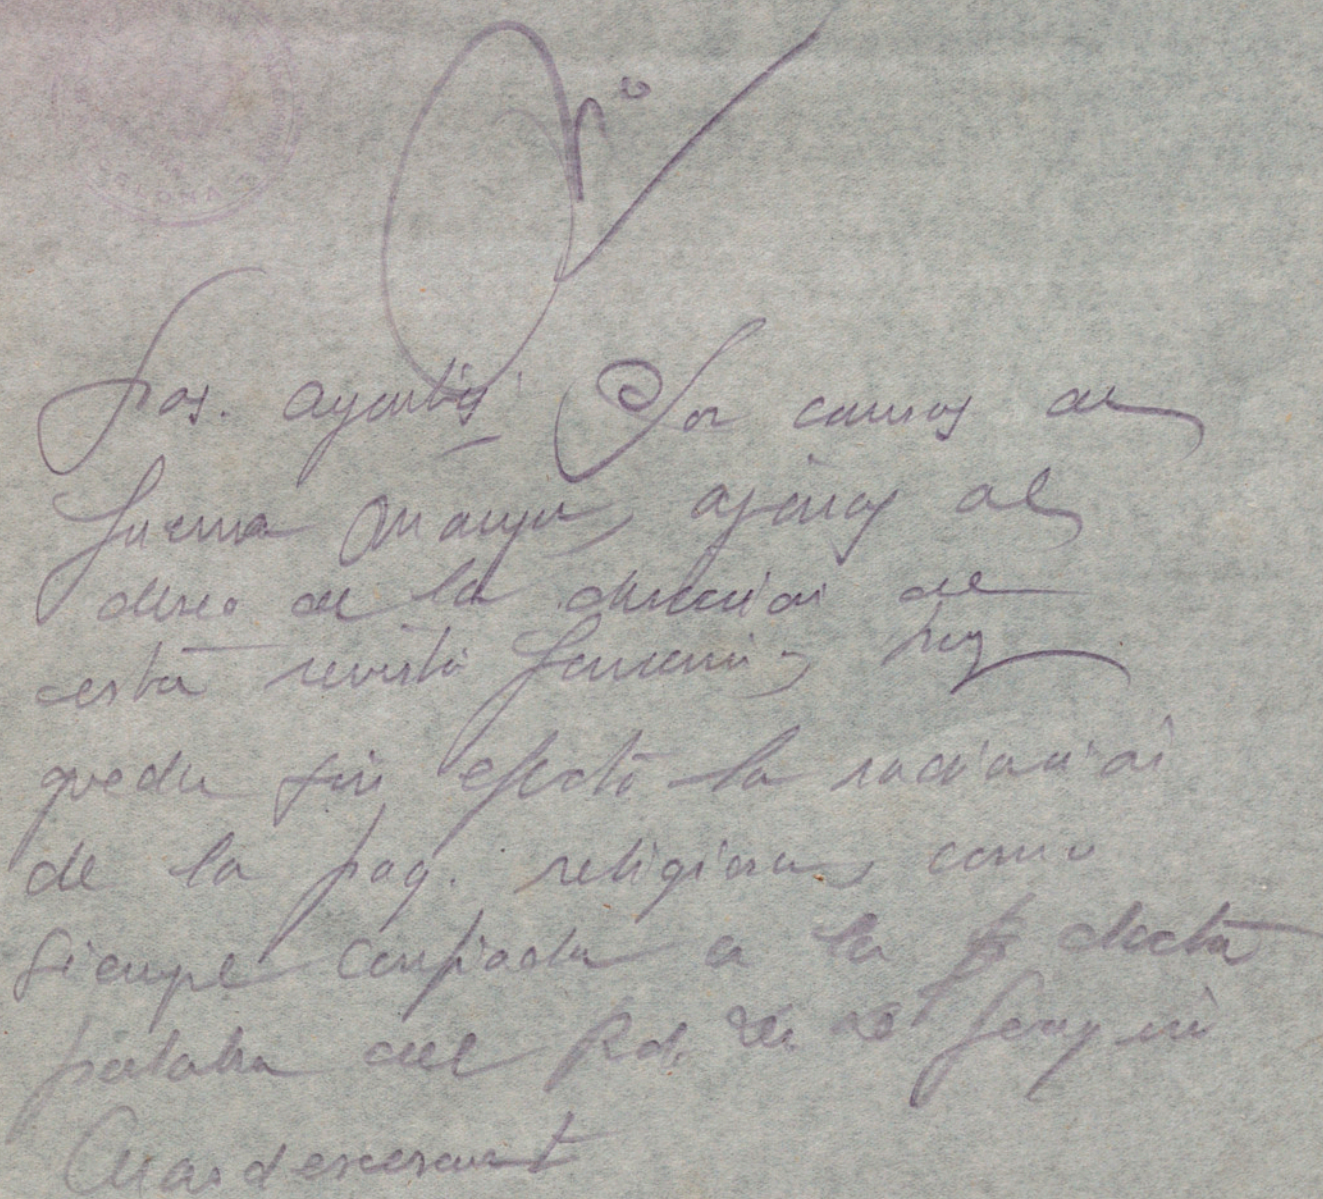 nº
Sras. oyentes: Por causas de
fuerza mayor, ajenas al
deseo de la dirección de
esta revista femenina, hoy
queda sin efecto la radiación
de la pag. religiosa, como
siempre confiada a la docta
palabra del Rd.